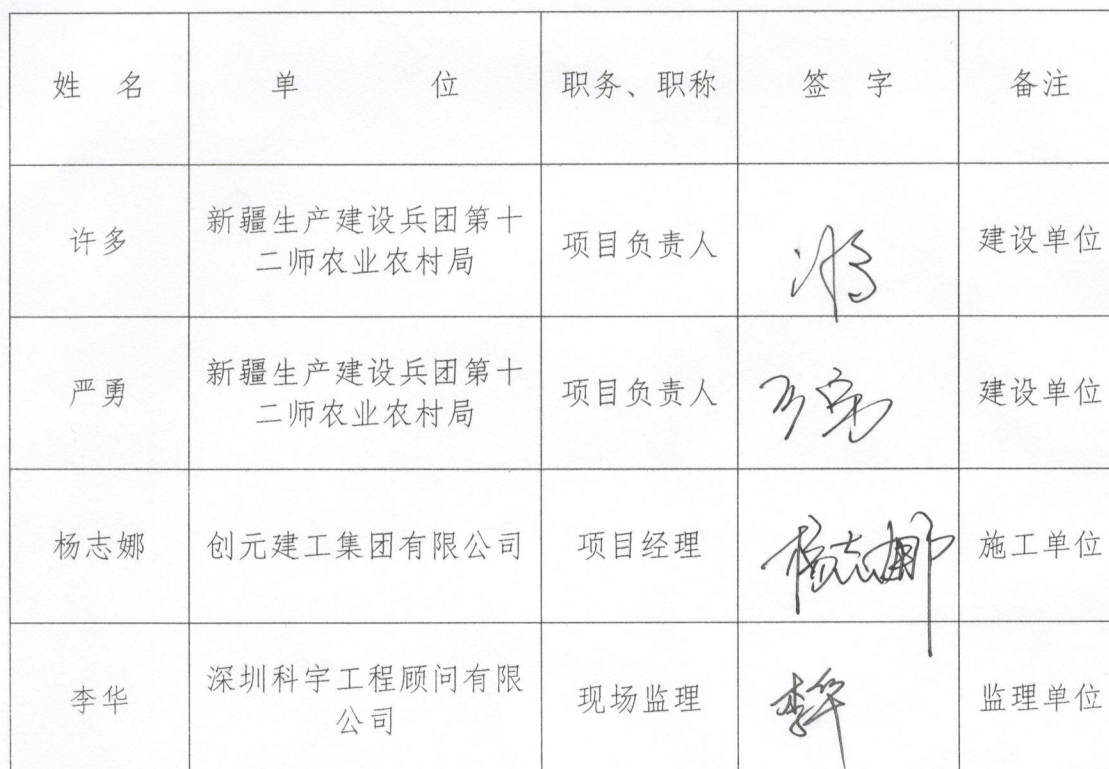 姓 名 单 位 职务、职称 签 字 备注
许多 新疆生产建设兵团第十二师农业农村局 项目负责人 许多 建设单位
严勇 新疆生产建设兵团第十二师农业农村局 项目负责人 建设单位
杨志娜 创元建工集团有限公司 项目经理 杨志娜 施工单位
李华 深圳科宇工程顾问有限公司 现场监理 李华 监理单位